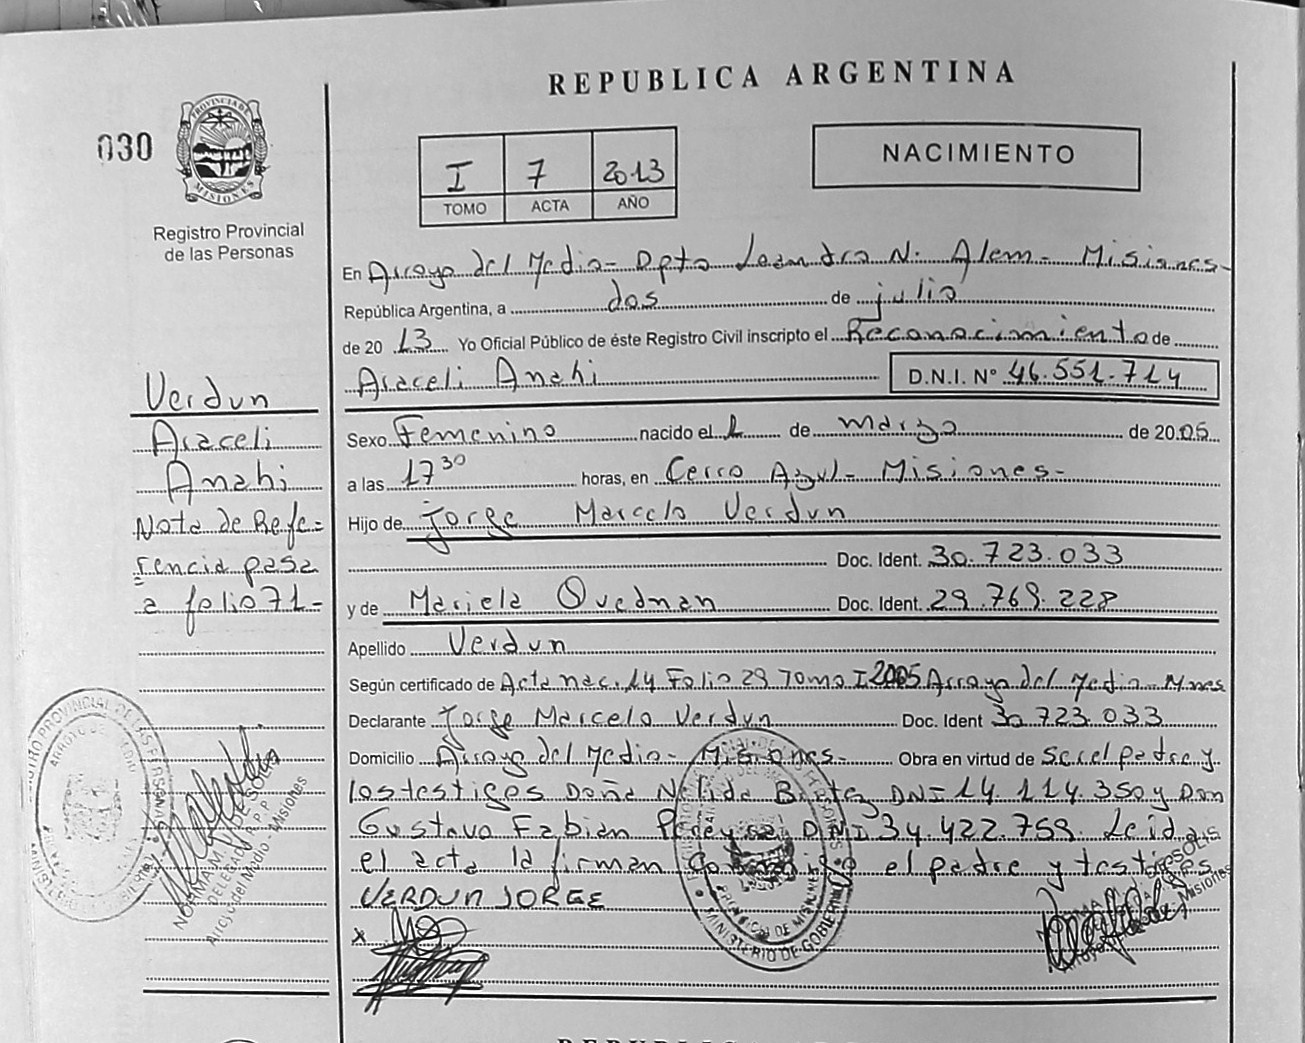 REPUBLICA ARGENTINA
030
PROVINCIA DE
MISIONES
Registro Provincial
de las Personas
I 7 2013
TOMO ACTA AÑO
NACIMIENTO
En Arroyo del Medio- Dpto Leandro N. Alem- Misiones-
República Argentina, a dos de julio
de 20 13 Yo Oficial Público de éste Registro Civil inscripto el Reconocimiento de
Araceli Anahi D.N.I. N° 46.551.714
Sexo Femenino nacido el 1 de marzo de 20 05
a las 17 30 horas, en Cerro Azul- Misiones-
Hijo de Jorge Marcelo Verdun
Doc. Ident. 30.723.033
y de Mariela Quednan Doc. Ident. 29.769.228
Apellido Verdun
Según certificado de Acta nac. 14 Folio 29 Tomo I 2005 Arroyo del Medio Mnes
Declarante Jorge Marcelo Verdun Doc. Ident 30.723.033
Domicilio Arroyo del Medio- Misiones- Obra en virtud de Ser el padre y
los testigos Doña Nilida DNI 14.114.350 y Don
Gustavo Fabian Pereyra DNI 34.422.759. Leida
el acta la firman el padre y testigos
VERDUN JORGE
Verdun
Araceli
Anahi
Nota de Refe=
rencia pasa
a folio 71-
MINISTERIO DE GOBIERNO
PROVINCIA DE MISIONES
DELEGADA R.P.P.
Arroyo del Medio - Misiones